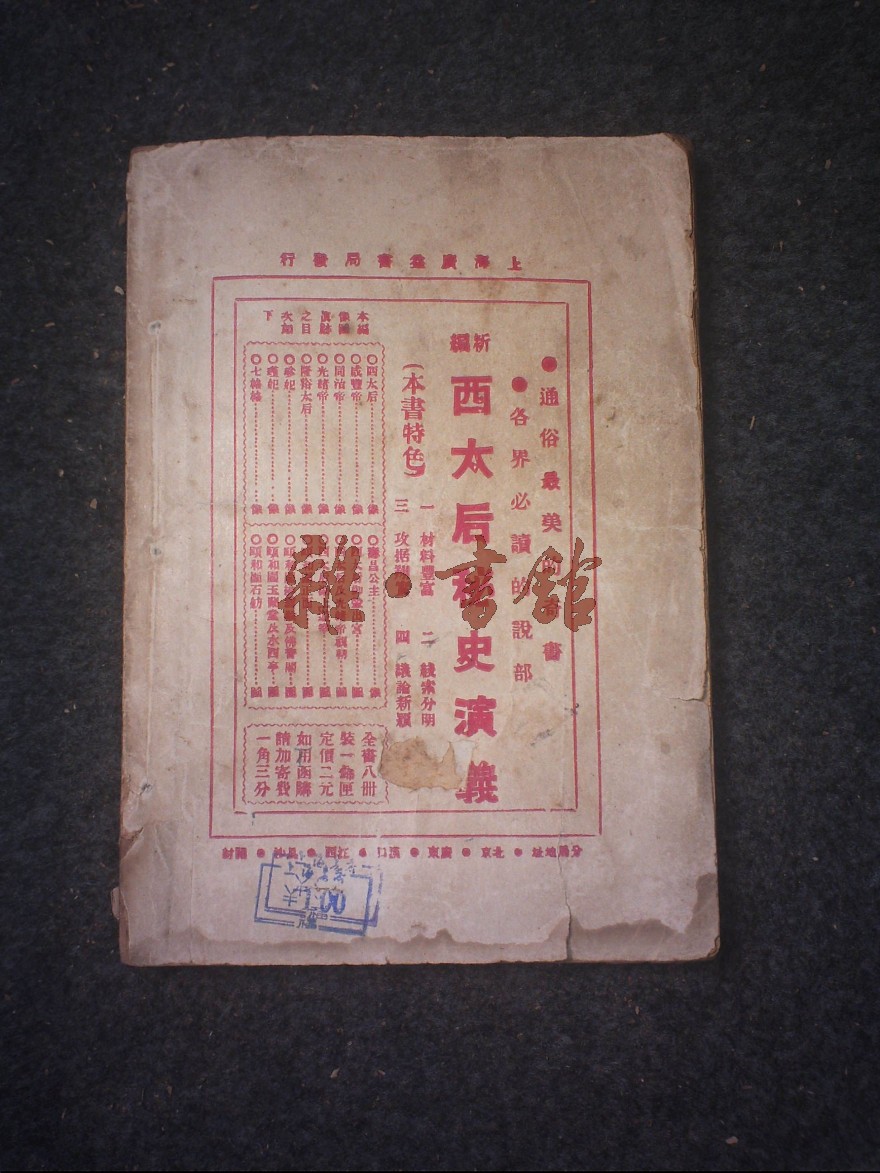 上海廣益書局發行
●通俗最美的奇書
●各界必讀的說部
新編
西太后秘史演義
(本書特色)
一 材料豐富 二 線索分明
三 攷据 四 議論新穎
本編
像圖
真蹟
之目
次如
下
◎西太后……像
◎咸豐帝……像
◎同治帝……像
◎光緒帝……像
◎隆裕太后……像
◎珍妃……像
◎瑾妃……像
◎七福晉……像
◎壽昌公主……像
◎頤和園玉蘭堂及水西亭……圖
◎頤和園石舫……圖
全書八冊
裝一錦匣
定價二元
如用函購
請加寄費
一角三分
分局地址●北京●廣東●漢口●江西●長沙●開封
雜·書館